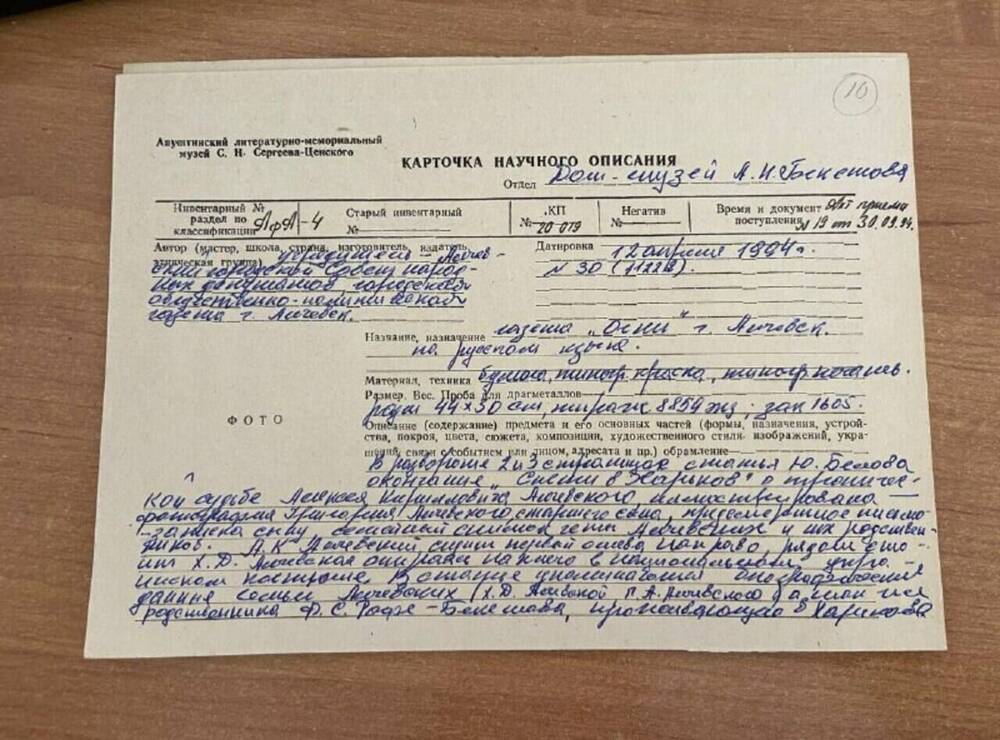 10
Алуштинский литературно-мемориальный
музей С. Н. Сергеева-Ценского
КАРТОЧКА НАУЧНОГО ОПИСАНИЯ
Отдел Дом-музей А.Н.Бекетова
Инвентарный №
раздел по
классификации АфА-4
Старый инвентарный
№
КП
№ 20 079
Негатив
№
Время и документ Акт приема
поступления № 19 от 30.09.94.
Автор (мастер, школа, страна, изготовитель, издатель,
этническая группа) учредитель – Алчев-
ский городской Совет народ-
ных депутатов, городская
общественно-политическая
газета г. Алчевск.
Датировка 12 апреля 1994 г.
N 30 (11228).
Название, назначение газета „Огни" г. Алчевск.
на русском языке.
Материал, техника бумага, типогр. краска, типогр. печать.
Размер. Вес. Проба для драгметаллов
разм 44×30 см, тираж 8854 экз; зак 1605.
ФОТО
Описание (содержание) предмета и его основных частей (формы, назначения, устрой-
ства, покроя, цвета, сюжета, композиции, художественного стиля изображений, укра-
шений, связи с событием или лицом, адресата и пр.) обрамление
В развороте 2 и 3 страницах статья Ю. Белова
окончание „ в Харьков" о трагичес-
кой судьбе Алексея Кирилловича Алчевского иллюстрирована
фотографиями Григория Алчевского старшего сына, предсмертное письмо-
записка сыну, семейный снимок четы Алчевских и их родствен-
ников. А.К Алчевский сидит первой слева направо, рядом сто-
ит Х.Д. Алчевская опираясь на него в национальном укра-
инском костюме. В статье
данные семьи Алчевских (Х.Д. Алчевской Г. А. Алчевского а
родственника Ф. С. Рофе-Бекетова, проживающего в Харькове